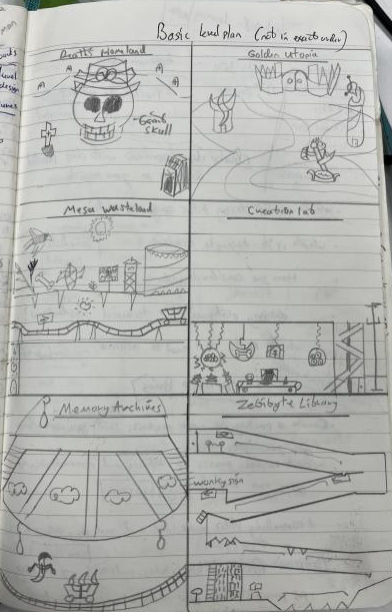 Basic level plan (not in exact order)
Death's Homeland
Golden Utopia
Giant
skull
Mesa Wasteland
Cueation lab
Memory Archives
Zettibyte Library
wonky sign
level
design